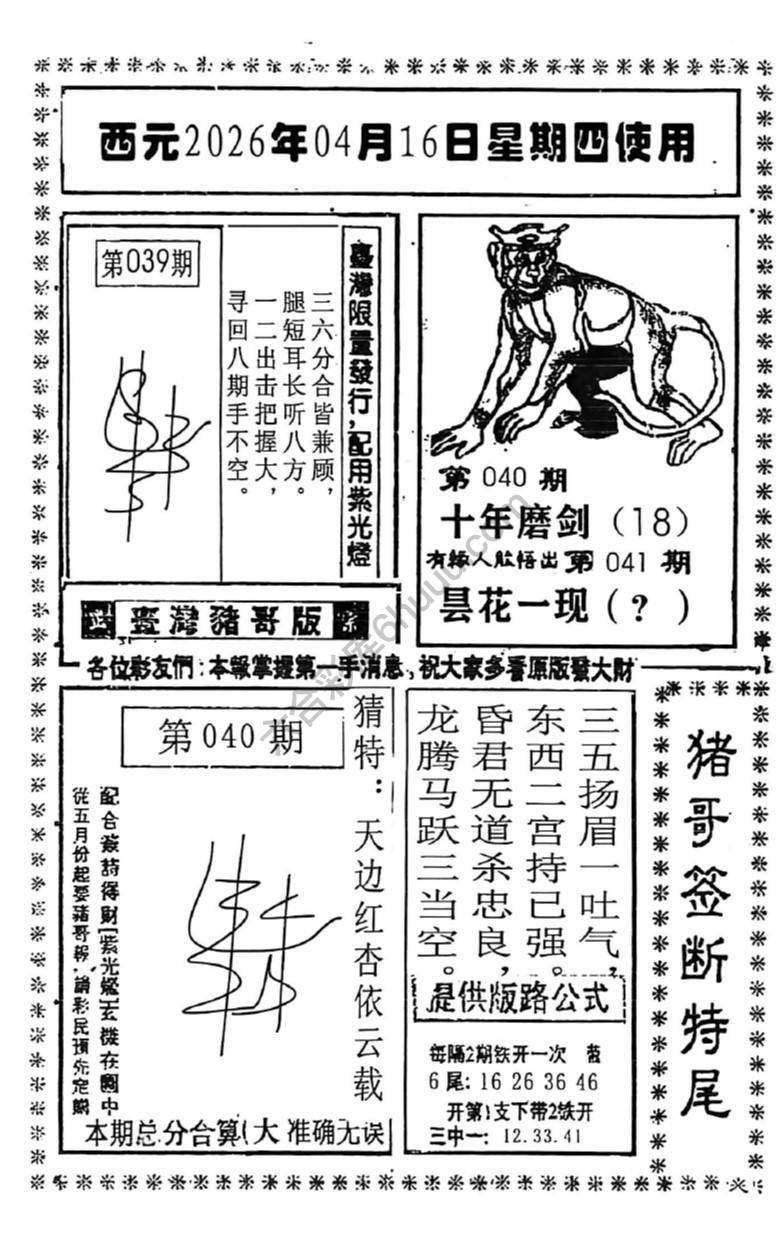 西元2026年04月16日星期四使用
第039期
臺灣限量發行，配用紫光燈
三六分合皆兼顾，
腿短耳长听八方。
一二出击把握大，
寻回八期手不空。
臺灣豬哥版
第 040 期
十年磨剑（18）
有緣人能悟出 第 041 期
昙花一现（？）
各位彩友們：本報掌握第一手消息，祝大家多看原版發大財
六合彩库6huuu.com
第 040 期
猜特：天边红杏依云载
配合簽詩得財[紫光燈]玄機在圖中
從五月份起要豬哥報，請彩民預先定購
本期总分合算（大 准确无误
三五扬眉一吐气，
东西二宫持已强。
昏君无道杀忠良，
龙腾马跃三当空。
提供版路公式
每隔2期铁开一次 蓝
6尾：16 26 36 46
开第1支下带2铁开
三中一：12.33.41
猪哥签断特尾